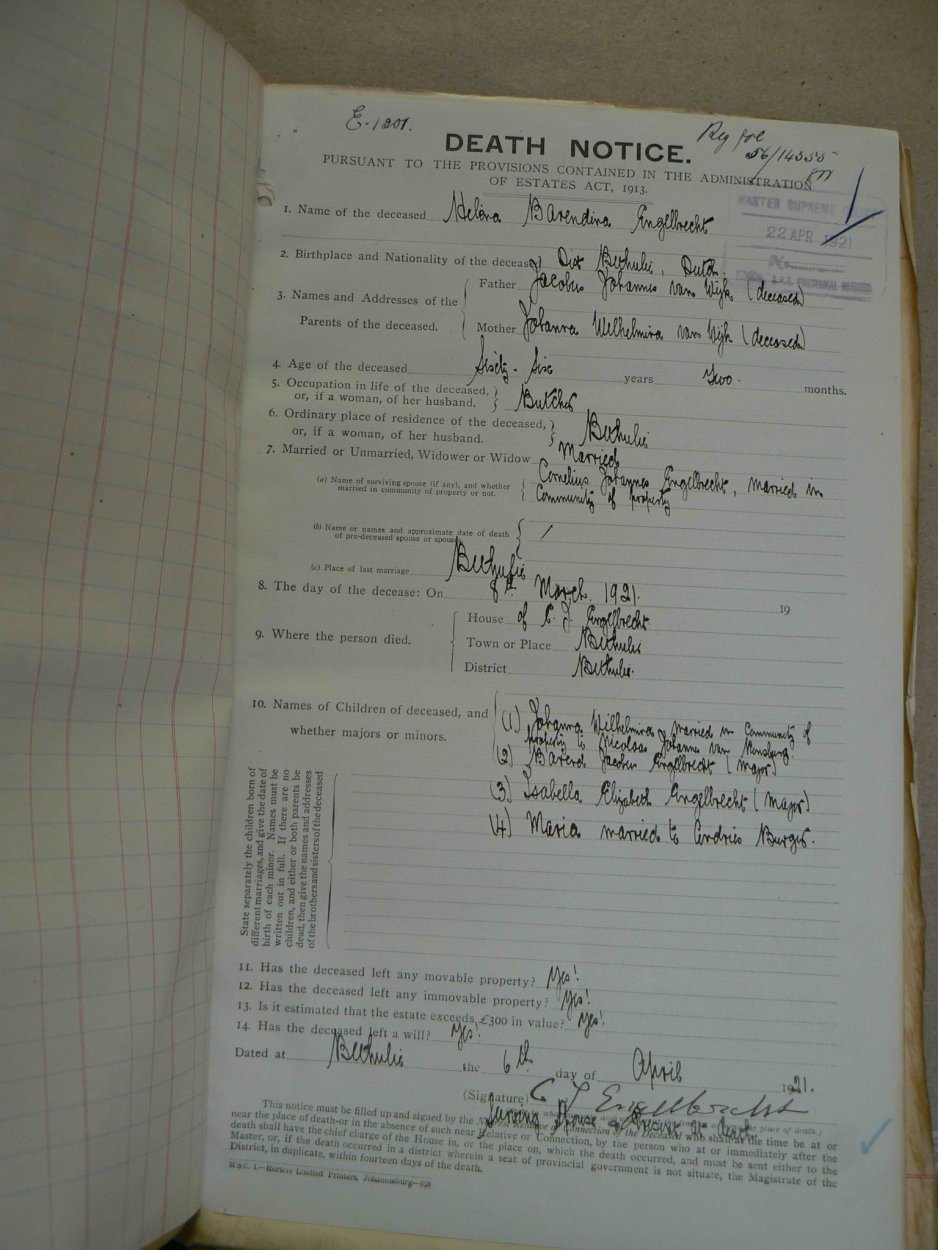 E-1201.
Reg fol
56/14355
DEATH NOTICE.
PURSUANT TO THE PROVISIONS CONTAINED IN THE ADMINISTRATION
OF ESTATES ACT, 1913.
MASTER SUPREME
22 APR 1921
1. Name of the deceased Helena Barendina Engelbrecht
2. Birthplace and Nationality of the deceased Dist Bethulie, Dutch.
3. Names and Addresses of the Parents of the deceased.
Father Jacobus Johannes van Wijk (deceased)
Mother Johanna Wilhelmina van Wijk (deceased)
4. Age of the deceased Sixty-Six years Two months.
5. Occupation in life of the deceased, or, if a woman, of her husband. Butcher
6. Ordinary place of residence of the deceased, or, if a woman, of her husband. Bethulie
7. Married or Unmarried, Widower or Widow Married
(a) Name of surviving spouse (if any), and whether married in community of property or not. Cornelius Johannes Engelbrecht, married in
Community of property
(b) Name or names and approximate date of death of pre-deceased spouse or spouses /
(c) Place of last marriage Bethulie
8. The day of the decease: On 8th March 1921. 19
9. Where the person died.
House of C. J. Engelbrecht
Town or Place Bethulie
District Bethulie.
10. Names of Children of deceased, and whether majors or minors.
(1) Johanna Wilhelmina married in Community of
property to Nicolaas Johannes van Rensburg
(2) Barend Jacobus Engelbrecht (Major)
(3) Isabella Elizabeth Engelbrecht (Major)
(4) Maria married to Hendries Burger.
State separately the children born of
different marriages, and give the date of
birth of each minor. Names must be
written out in full. If there are no
children, and either or both parents be
dead, then give the names and addresses
of the brothers and sisters of the deceased
11. Has the deceased left any movable property? Yes!
12. Has the deceased left any immovable property? Yes!
13. Is it estimated that the estate exceeds £300 in value? Yes!
14. Has the deceased left a will? Yes!
Dated at Bethulie the 6th day of April 1921.
(Signature) C J Engelbrecht
Surviving Spouse
place of death.)
This notice must be filled up and signed by the Nearest Relative or Connection of the Deceased who shall at the time be at or
near the place of death-or in the absence of such near Relative or Connection, by the person who at or immediately after the
death shall have the chief charge of the House in, or the place on, which the death occurred, and must be sent either to the
Master, or, if the death occurred in a district wherein a seat of provincial government is not situate, the Magistrate of the
District, in duplicate, within fourteen days of the death.
M.S.C. 1.—Hortors Limited Printers, Johannesburg